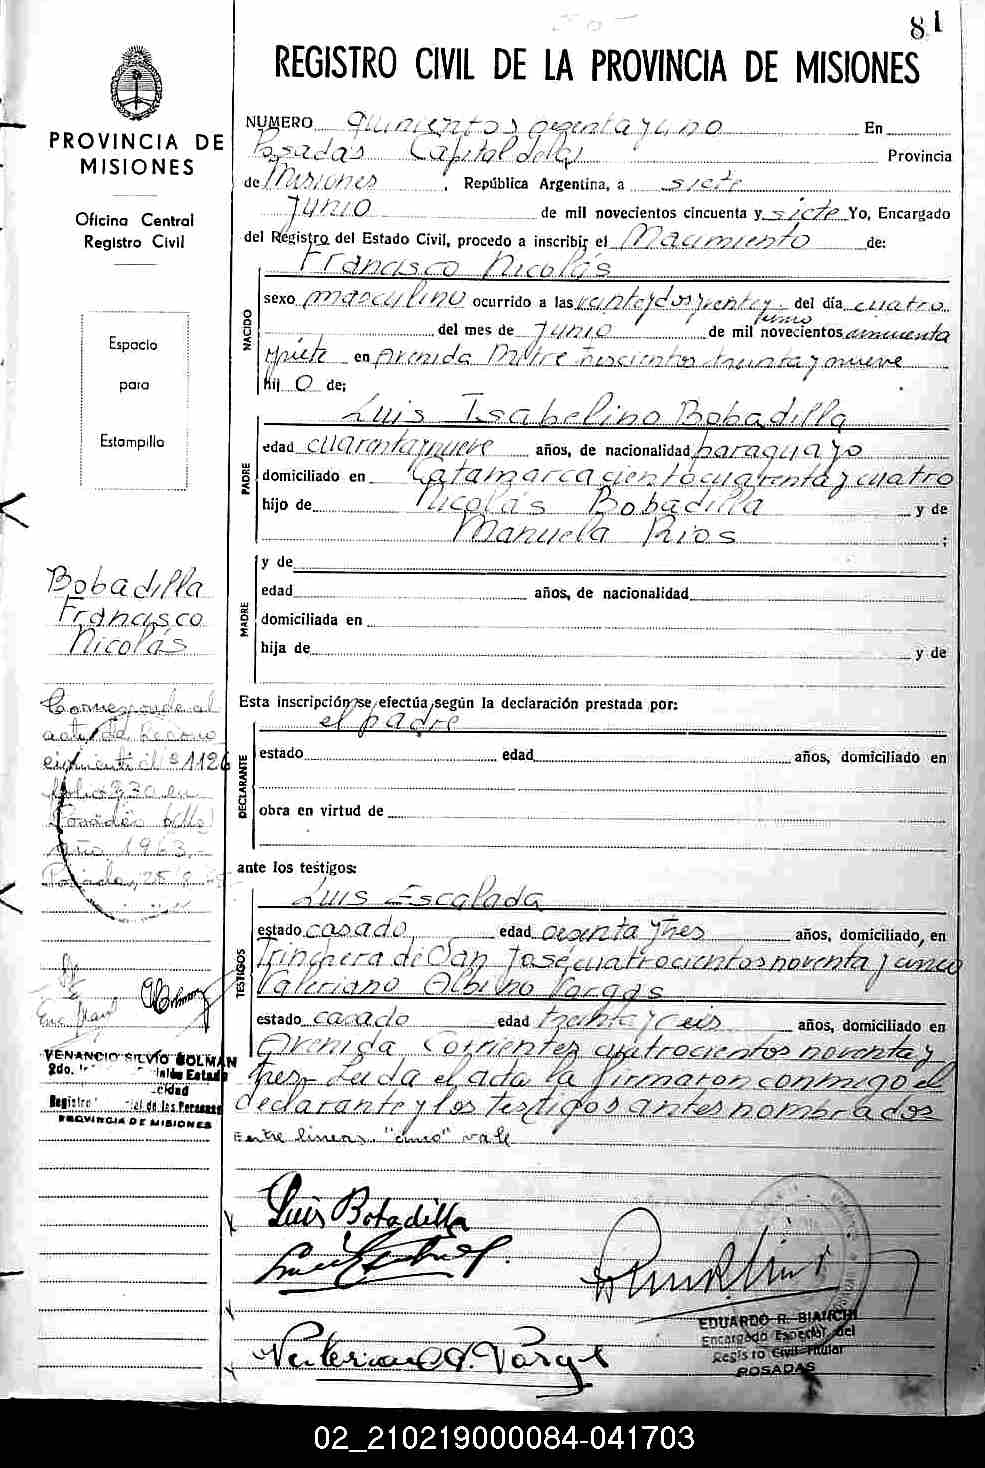 81
REGISTRO CIVIL DE LA PROVINCIA DE MISIONES
PROVINCIA DE
MISIONES
Oficina Central
Registro Civil
Espacio
para
Estampilla
NUMERO quinientos y uno En
Posadas Capital de Provincia
de Misiones, República Argentina, a siete
Junio de mil novecientos cincuenta y siete Yo, Encargado
del Registro del Estado Civil, procedo a inscribir el Nacimiento de:
Francisco Nicolás
NACIDO
sexo masculino ocurrido a las del día cuatro
del mes de Junio de mil novecientos cincuenta
y siete en Avenida Mitre trescientos treinta y nueve
hij o de;
Luis Isabelino Bobadilla
PADRE
edad cuarenta y nueve años, de nacionalidad paraguayo
domiciliado en Catamarca ciento cuarenta y cuatro
hijo de Nicolás Bobadilla y de
Manuela Rios ;
MADRE
y de
edad años, de nacionalidad
domiciliada en
hija de y de
Bobadilla
Francisco
Nicolás
Corresponde al
acta de recono
cimiento 1126
folio en
Posadas
Año 1963.-
Esta inscripción se efectúa según la declaración prestada por:
el padre
DECLARANTE
estado edad años, domiciliado en
obra en virtud de
ante los testigos:
TESTIGOS
Luis Escalada
estado casado edad sesenta y tres años, domiciliado, en
Trinchera de San José cuatrocientos noventa y cinco
Valeriano Albino Vargas
estado casado edad treinta y seis años, domiciliado en
Avenida Corrientes cuatrocientos noventa y
tres- Leida el acta la firmaron conmigo el
declarante y los testigos antes nombrados
Entre lineas "cinco" vale
VENANCIO SILVIO BOLMAN
2do.
Registro de las Personas
PROVINCIA DE MISIONES
Luis Bobadilla
Valeriano A. Vargas
EDUARDO R. BIANCHI
Encargado Especial del
Registro Civil Titular
POSADAS
02_210219000084-041703